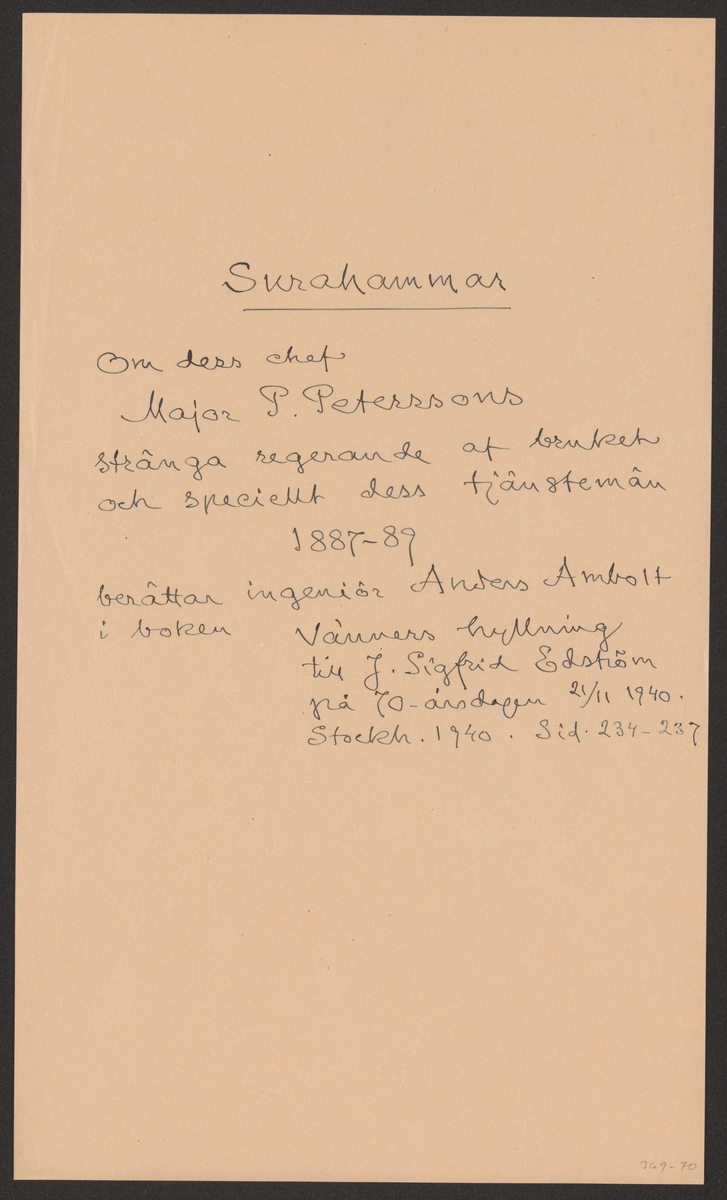 Surahammar
Om dess chef
Major P. Peterssons
stränga regerande af bruket
och speciellt dess tjänstemän
1887-89
berättar ingeniör Anders Ambolt
i boken Vänners hyllning
till J. Sigfrid Edström
på 70-årsdagen 21/11 1940.
Stockh. 1940. Sid. 234-237
369-70